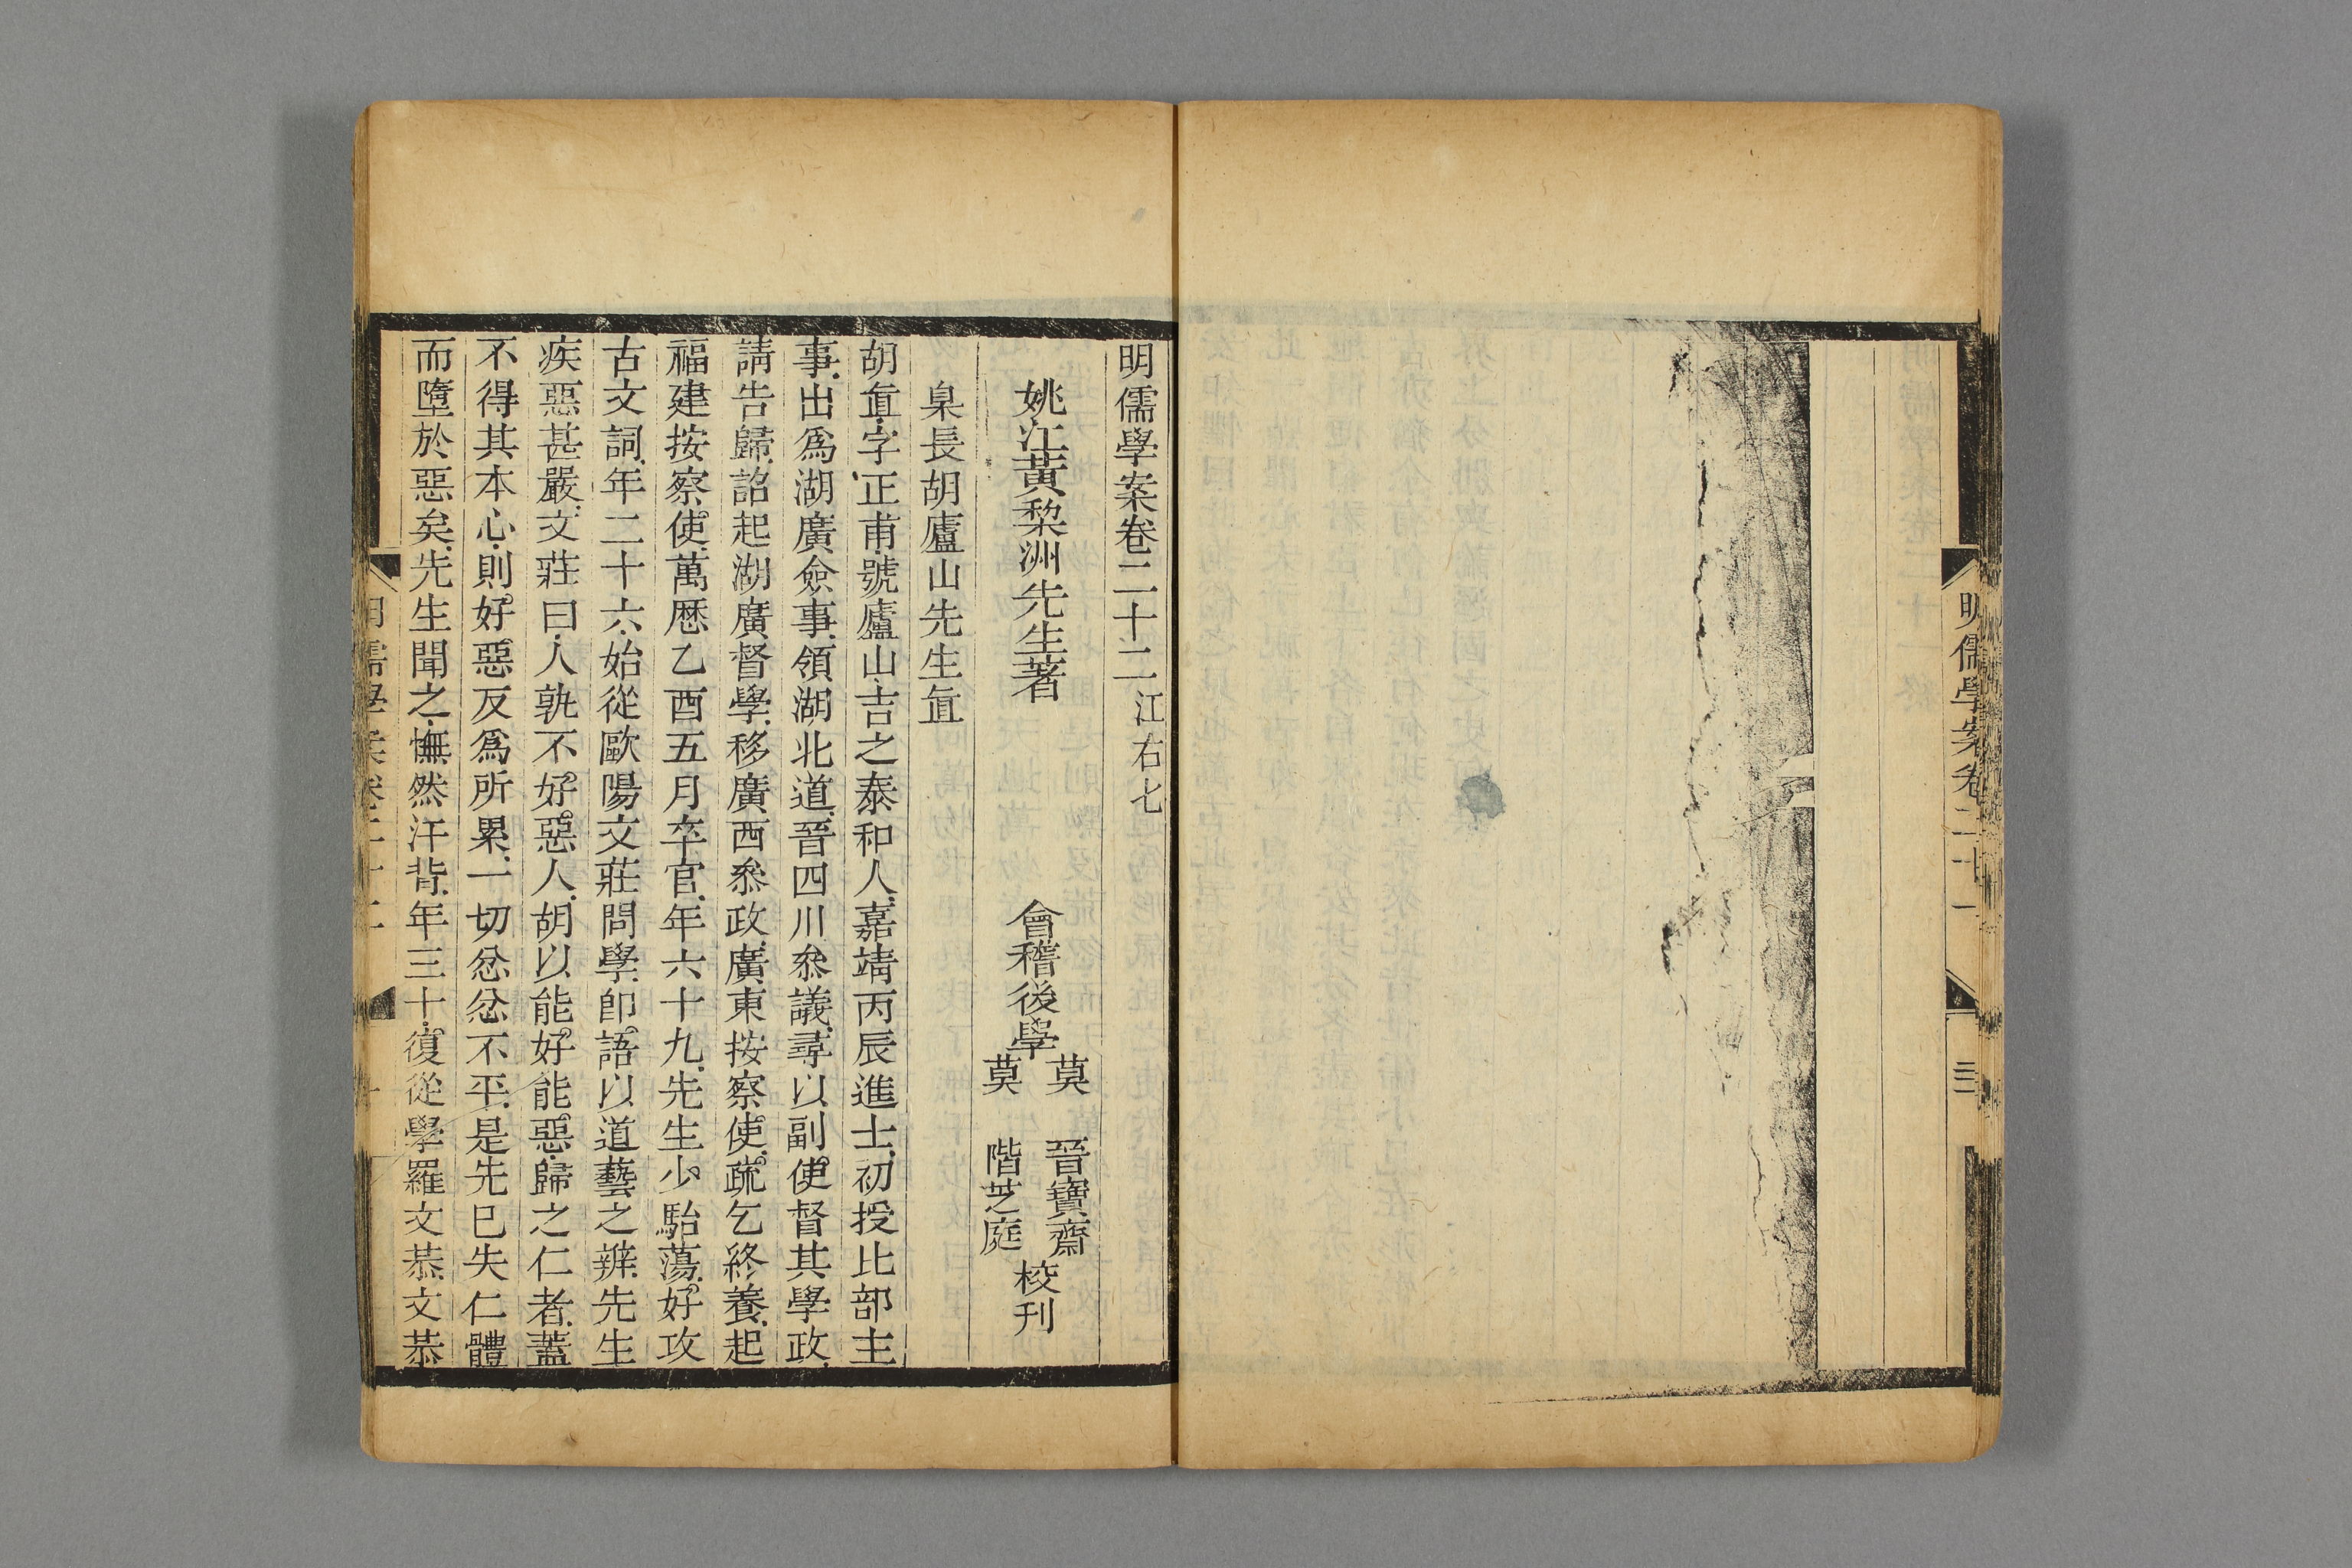 明儒學案卷二十一
三
明儒學案卷二十二 江右七
姚江黃棃洲先生著 會稽後學 莫 晉寶齋 莫 階芝庭 校刊
臬長胡廬山先生直
胡直字正甫號廬山吉之泰和人嘉靖丙辰進士初授比部主
事出爲湖廣僉事領湖北道晉四川叅議尋以副使督其學政
請告歸詔起湖廣督學移廣西叅政廣東按察使疏乞終養起
福建按察使萬歷乙酉五月卒官年六十九先生少駘蕩好攻
古文詞年二十六始從歐陽文莊問學卽語以道藝之辨先生
疾惡甚嚴文莊曰人孰不好惡人胡以能好能惡歸之仁者蓋
不得其本心則好惡反爲所累一切忿忿不平是先已失仁體
而墮於惡矣先生聞之憮然汗背年三十復從學羅文恭文恭
明儒學案卷二十二
一